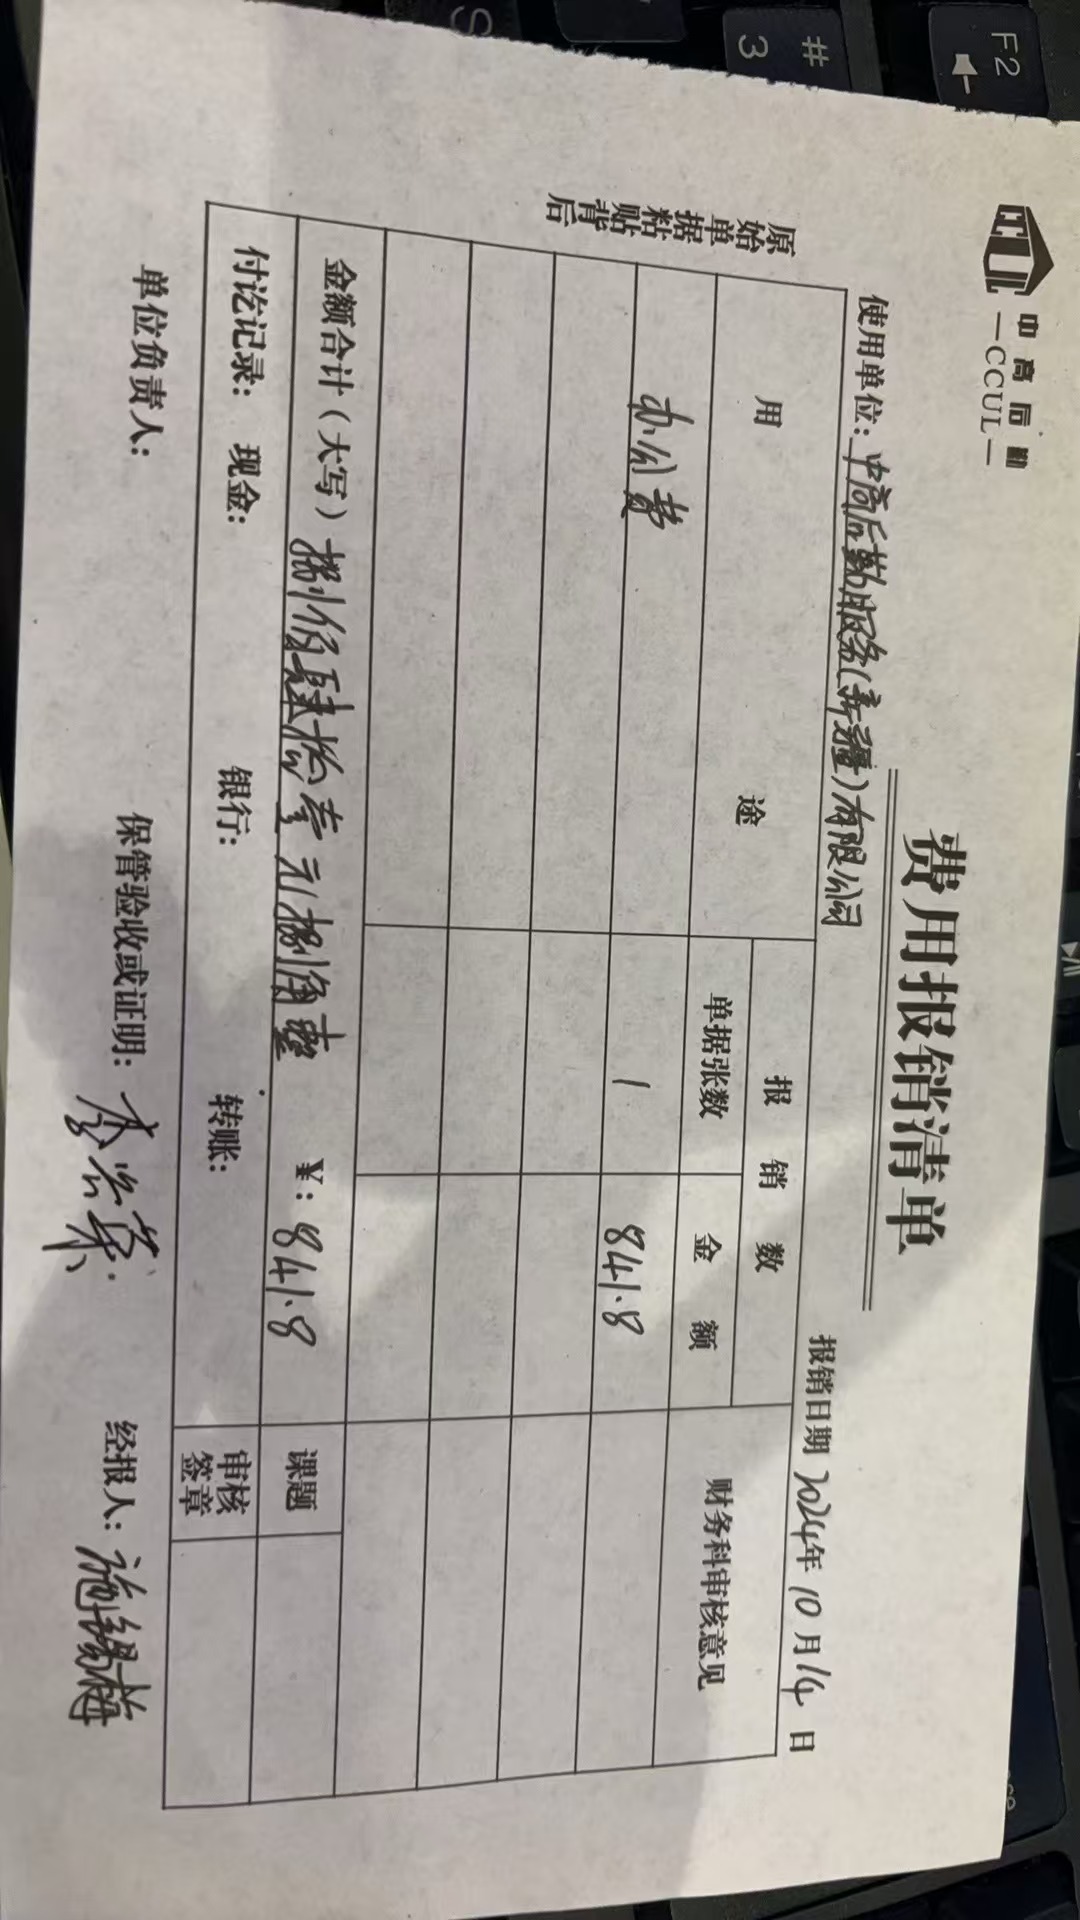 中高后勤
—CCUL—
费用报销清单
使用单位：中高后勤服务(新疆)有限公司
报销日期 2024年10月14日
原始单据粘贴背后
用途
报销数
财务科审核意见
单据张数
金额
办公费
1
841.8
金额合计（大写）捌佰肆拾壹元捌角整
￥：841.8
课题
付讫记录：
现金：
银行：
转账：
审核签章
单位负责人：
保管验收或证明：
经报人：
F2
#
3
S